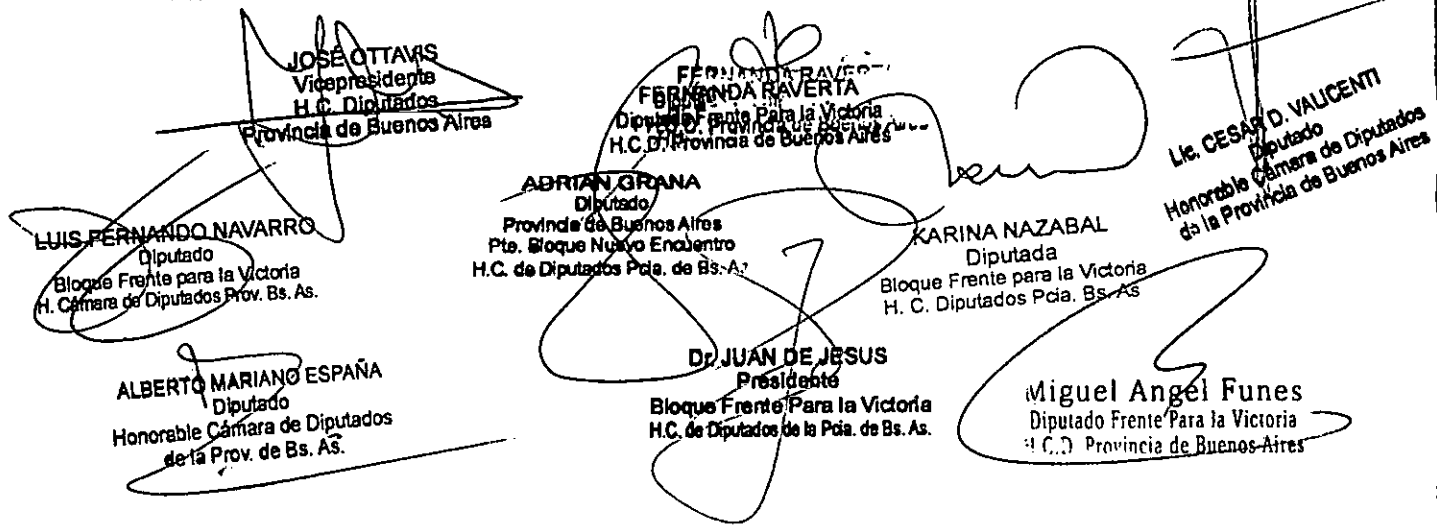 JOSÉ OTTAVIS
Vicepresidente
H.C. Diputados
Provincia de Buenos Aires
FERNANDA RAVERTA
FERNANDA RAVERTA
Diputada Frente Para la Victoria
H.C.D. Provincia de Buenos Aires
Lic. CESAR D. VALICENTI
Diputado
Honorable Cámara de Diputados
de la Provincia de Buenos Aires
LUIS FERNANDO NAVARRO
Diputado
Bloque Frente para la Victoria
H. Cámara de Diputados Prov. Bs. As.
ADRIAN GRANA
Diputado
Provincia de Buenos Aires
Pte. Bloque Nuevo Encuentro
H.C. de Diputados Pcia. de Bs. As
KARINA NAZABAL
Diputada
Bloque Frente para la Victoria
H. C. Diputados Pcia. Bs. As
ALBERTO MARIANO ESPAÑA
Diputado
Honorable Cámara de Diputados
de la Prov. de Bs. As.
Dr. JUAN DE JESUS
Presidente
Bloque Frente Para la Victoria
H.C. de Diputados de la Pcia. de Bs. As.
Miguel Angel Funes
Diputado Frente Para la Victoria
H.C.D. Provincia de Buenos Aires